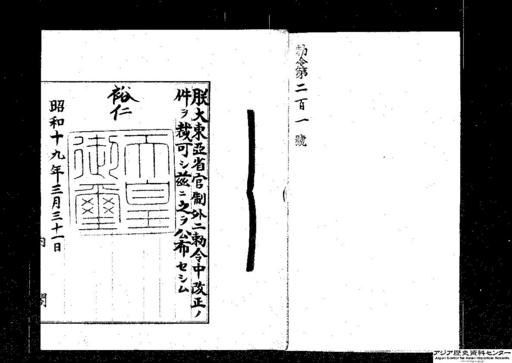 勅令第二百一號
朕大東亞省官制外二勅令中改正ノ
件ヲ裁可シ茲ニ之ヲ公布セシム
裕仁
天皇
御璽
昭和十九年三月三十一日
内閣
アジア歴史資料センター
Japan Center for Asian Historical Records